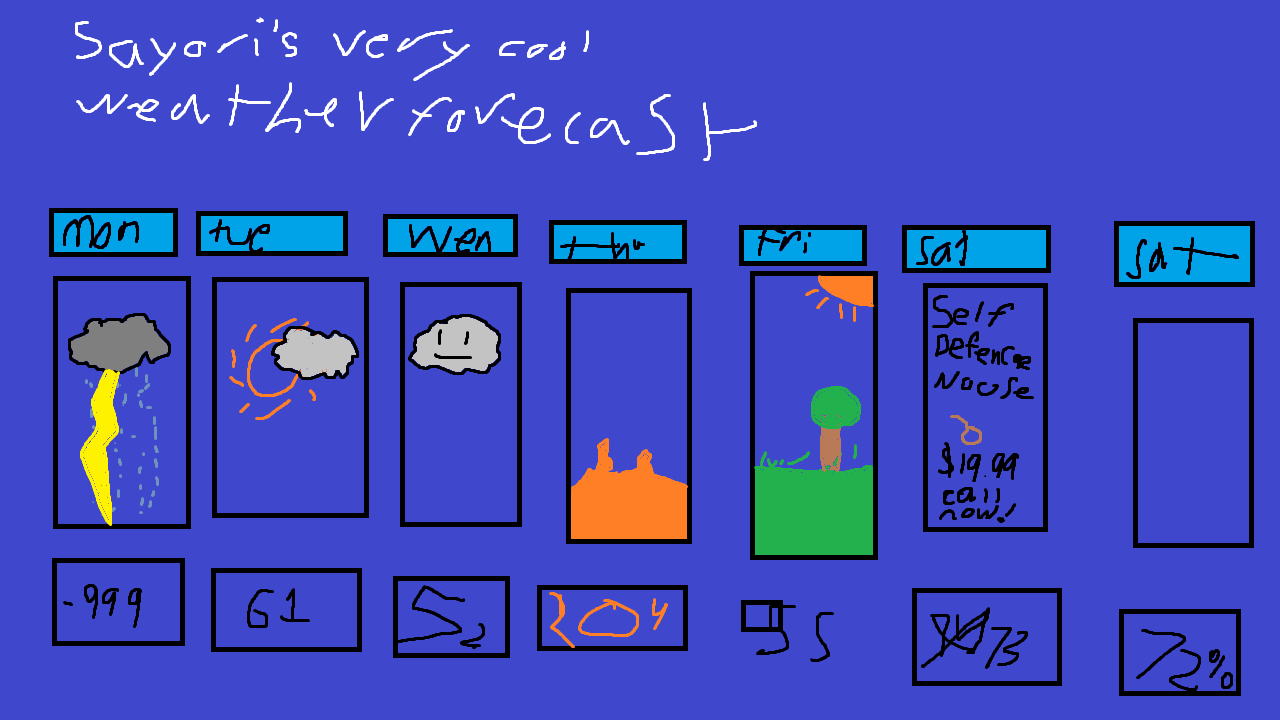 Sayori's very cool
weather forecast
mon tue wen thu fri sat sat
Self
Defence
Noose
$19.99
call
now!
-999 61 52 204 55 73 72%